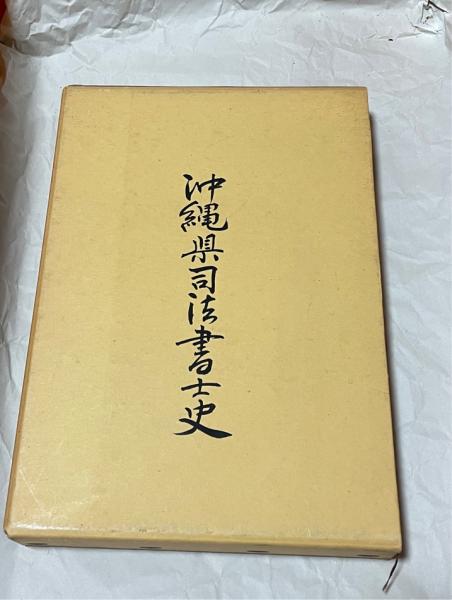 沖縄県司法書士史